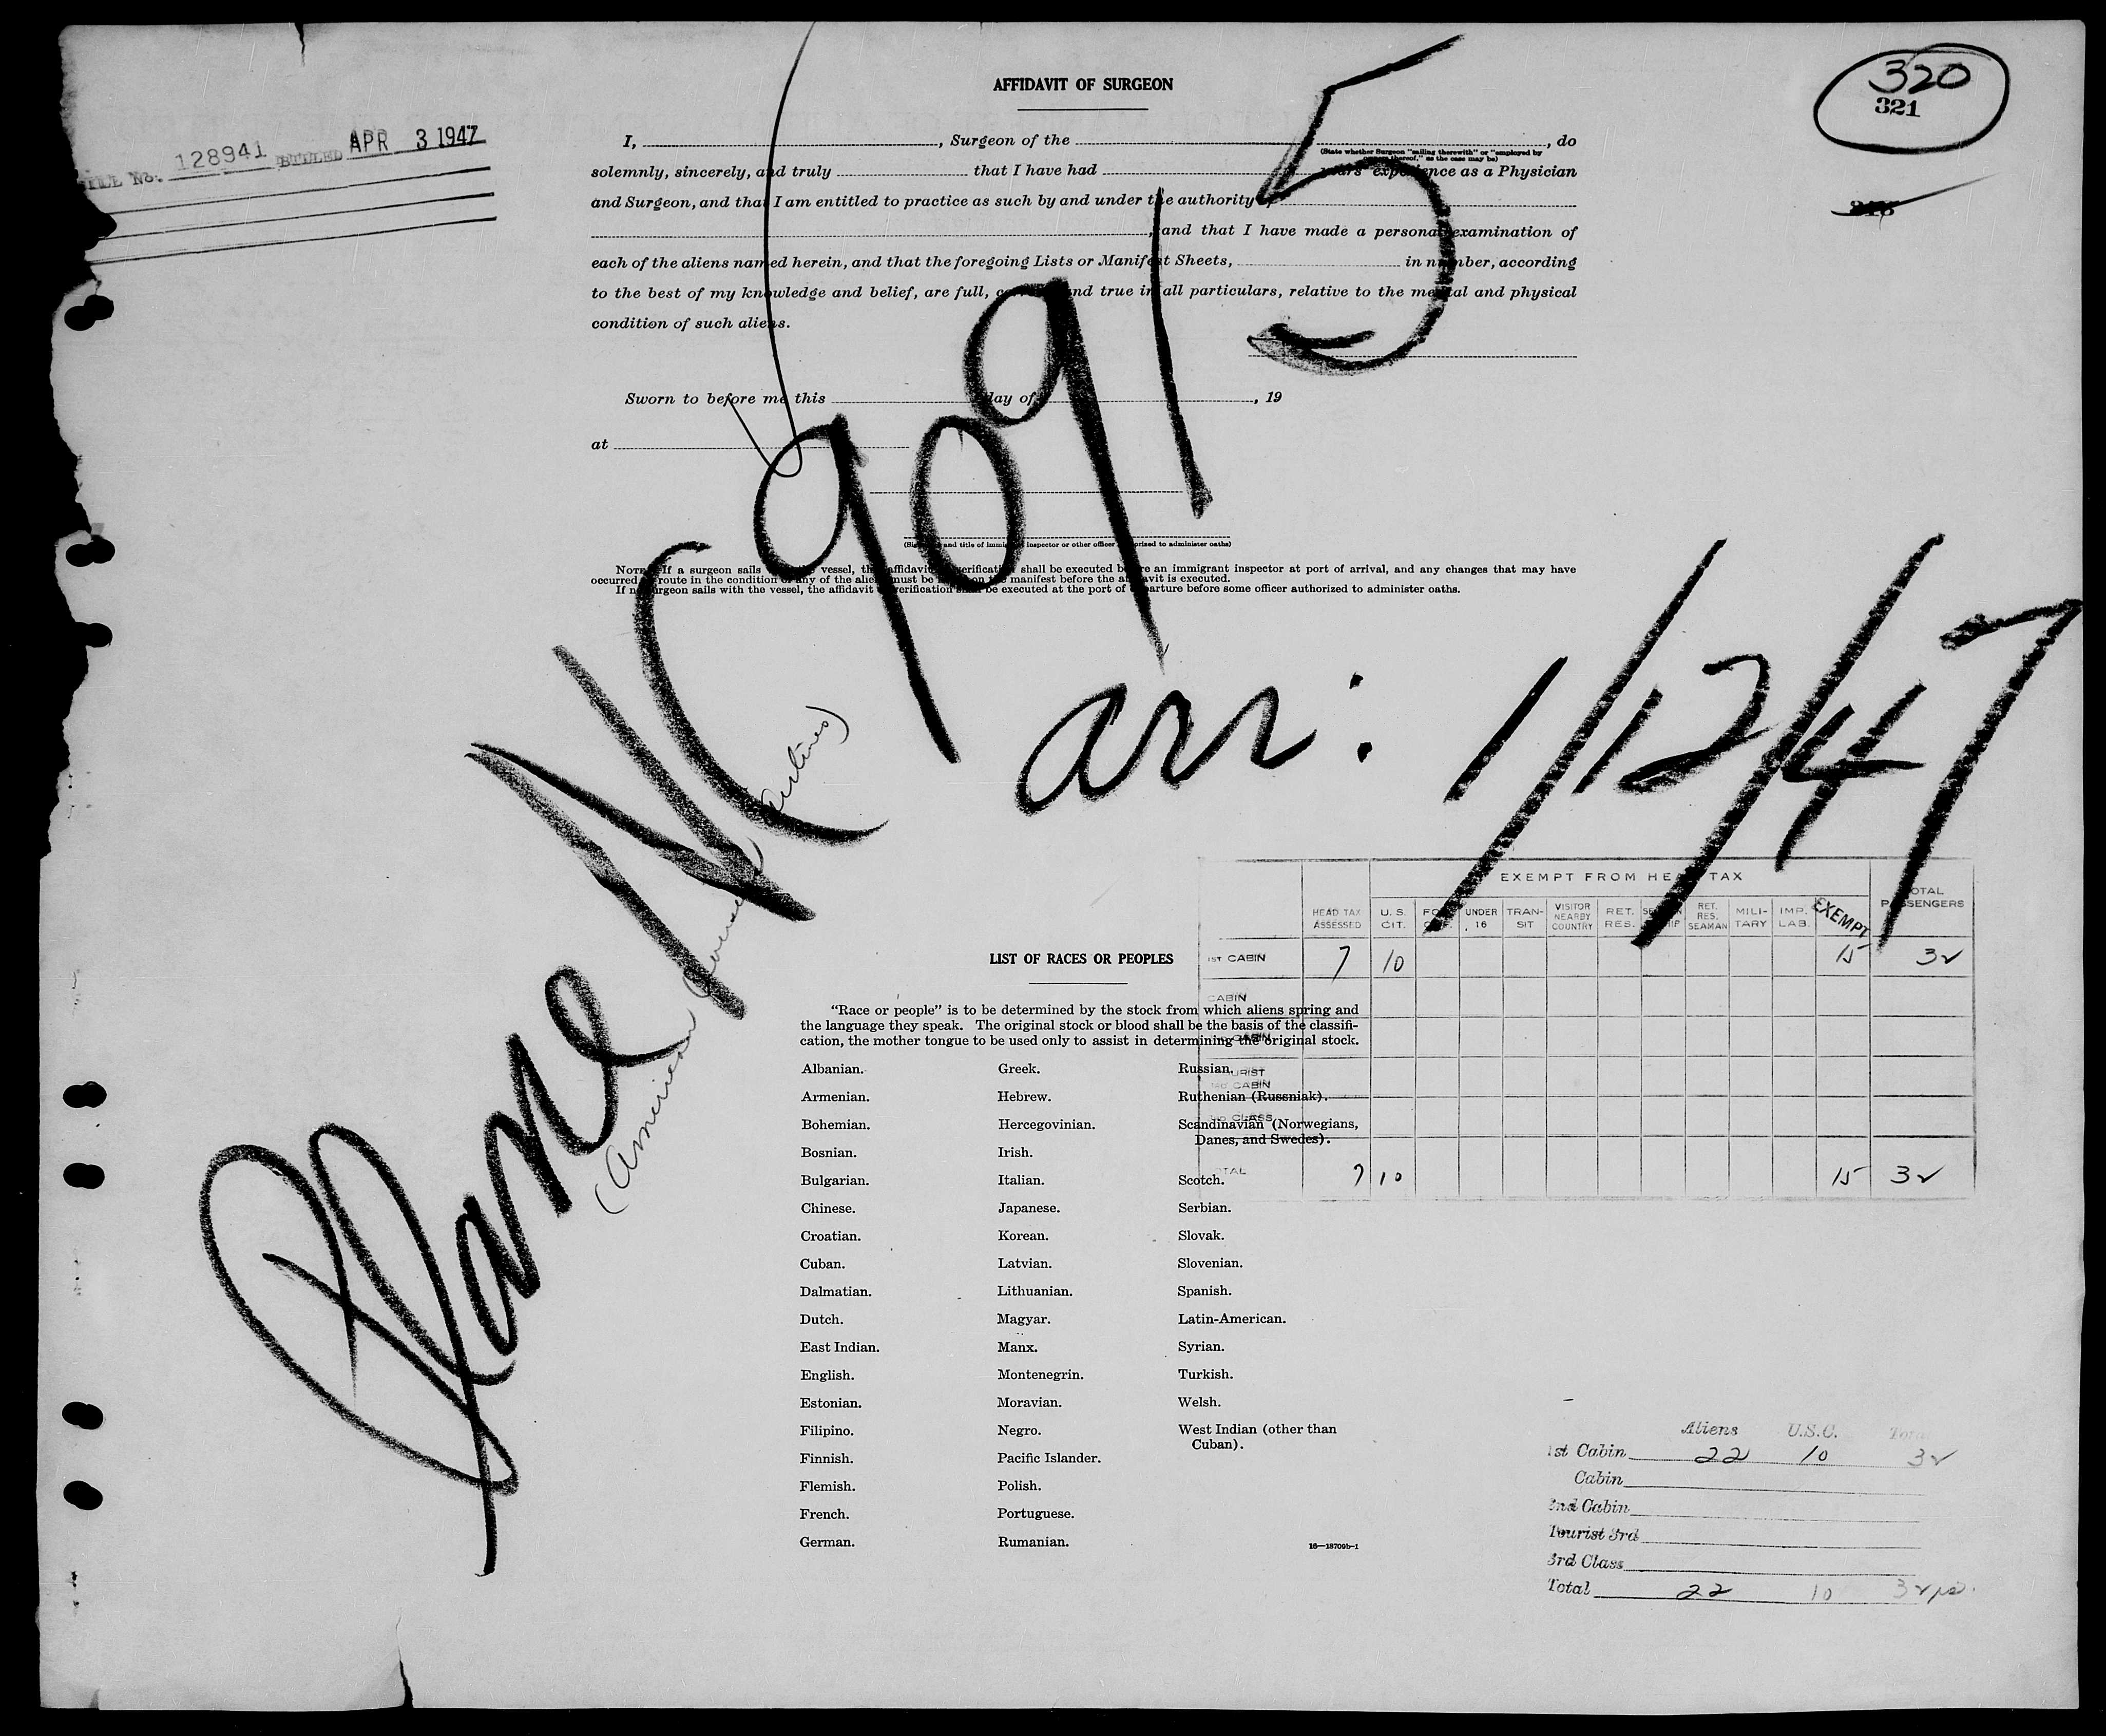 AFFIDAVIT OF SURGEON
320
321
128941 BILLED APR 3 1947
I, , Surgeon of the , do
(State whether Surgeon "sailing therewith" or "employed by
thereof," as the case may be)
solemnly, sincerely, and truly that I have had years' experience as a Physician
and Surgeon, and that I am entitled to practice as such by and under the authority of
, and that I have made a personal examination of
each of the aliens named herein, and that the foregoing Lists or Manifest Sheets, in number, according
to the best of my knowledge and belief, are full, and true in all particulars, relative to the mental and physical
condition of such aliens.
Sworn to before me this day of , 19
at
(Signature and title of immigrant inspector or other officer authorized to administer oaths)
NOTE.—If a surgeon sails vessel, the affidavit verification shall be executed before an immigrant inspector at port of arrival, and any changes that may have
occurred route in the condition of any of the aliens must be on the manifest before the affidavit is executed.
If no surgeon sails with the vessel, the affidavit verification shall be executed at the port of departure before some officer authorized to administer oaths.
Plane NC 90915
(American Overseas Airlines)
arr: 1/12/47
EXEMPT FROM HEAD TAX
HEAD TAX ASSESSED U. S. CIT. UNDER 16 TRAN-SIT VISITOR NEARBY COUNTRY RET. RES. RET. RES. SEAMAN MILI-TARY IMP. LAB. EXEMPT TOTAL PASSENGERS
1ST CABIN 7 10 15 32
CABIN
CABIN
TOURIST
3RD CABIN
3RD CLASS
TOTAL 7 10 15 32
LIST OF RACES OR PEOPLES
"Race or people" is to be determined by the stock from which aliens spring and
the language they speak. The original stock or blood shall be the basis of the classifi-
cation, the mother tongue to be used only to assist in determining the original stock.
Albanian. Greek. Russian.
Armenian. Hebrew. Ruthenian (Russniak).
Bohemian. Hercegovinian. Scandinavian (Norwegians,
Danes, and Swedes).
Bosnian. Irish.
Bulgarian. Italian. Scotch.
Chinese. Japanese. Serbian.
Croatian. Korean. Slovak.
Cuban. Latvian. Slovenian.
Dalmatian. Lithuanian. Spanish.
Dutch. Magyar. Latin-American.
East Indian. Manx. Syrian.
English. Montenegrin. Turkish.
Estonian. Moravian. Welsh.
Filipino. Negro. West Indian (other than
Cuban).
Finnish. Pacific Islander.
Flemish. Polish.
French. Portuguese.
German. Rumanian.
16—18709b-1
Aliens U.S.C. Total
1st Cabin 22 10 32
Cabin
2nd Cabin
Tourist 3rd
3rd Class
Total 22 10 32